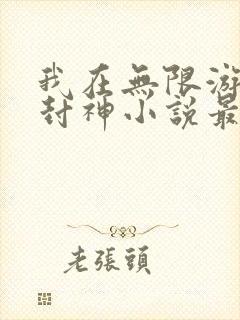 我在無限游
封神小說最
老張頭